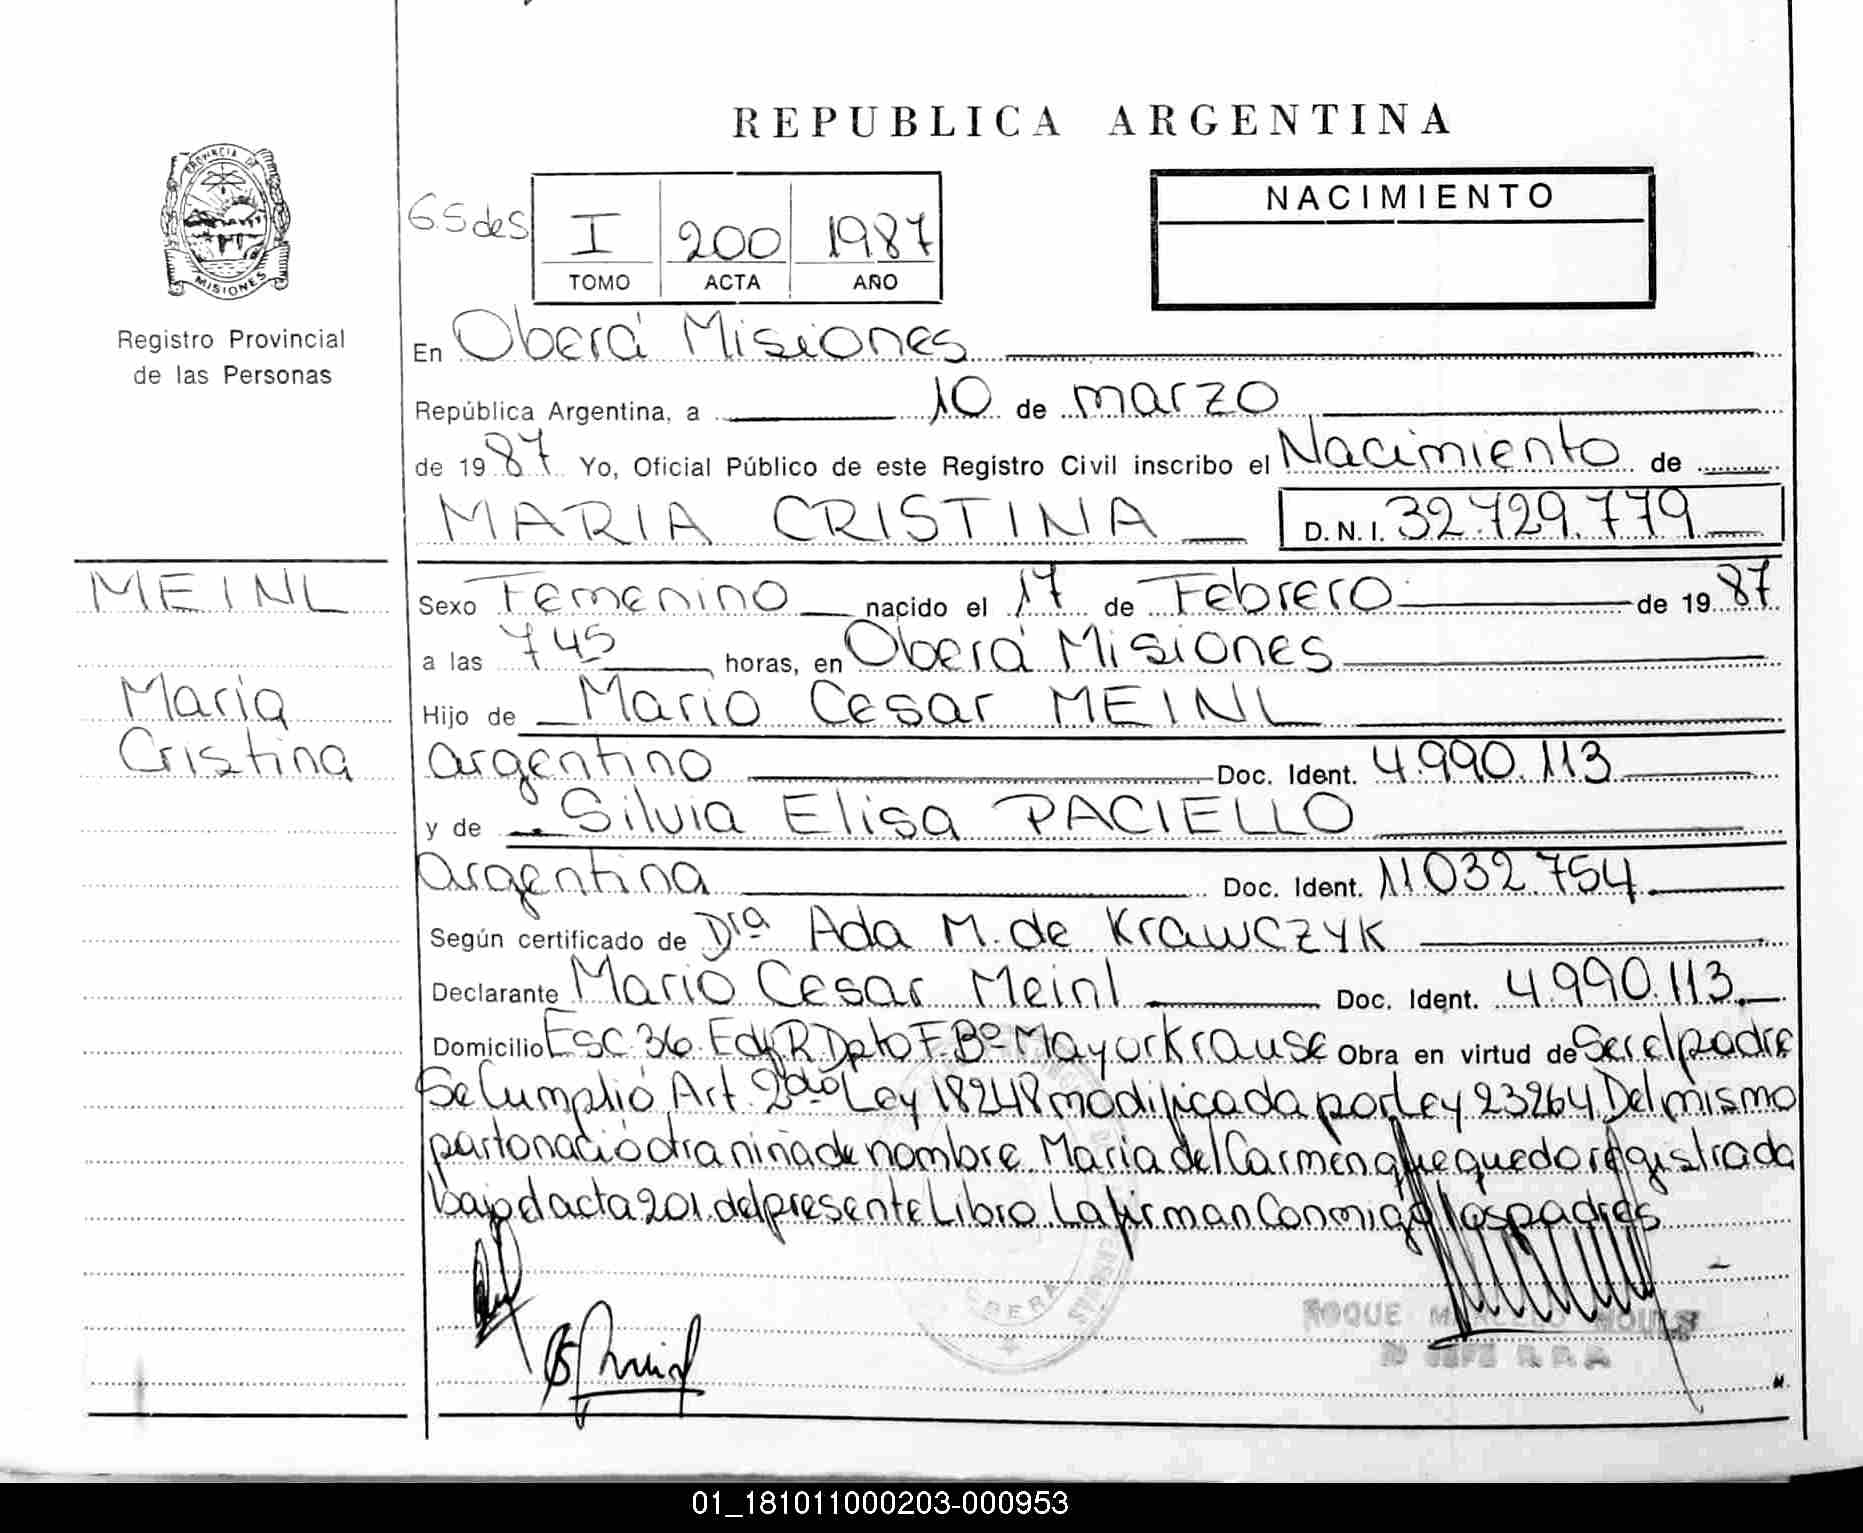 REPUBLICA ARGENTINA
PROVINCIA DE
MISIONES
Registro Provincial
de las Personas
65 des
I 200 1987
TOMO ACTA AÑO
NACIMIENTO
En Oberá Misiones
República Argentina, a 10 de marzo
de 19 87 Yo, Oficial Público de este Registro Civil inscribo el Nacimiento de
MARIA CRISTINA D.N.I. 32.729.779
MEINL
Maria
Cristina
Sexo Femenino nacido el 17 de Febrero de 19 87
a las 7 45 horas, en Oberá Misiones
Hijo de Mario Cesar MEINL
argentino Doc. Ident. 4.990.113
y de Silvia Elisa PACIELLO
argentina Doc. Ident. 11.032.754
Según certificado de Dra Ada M. de Krawczyk
Declarante Mario Cesar Meinl Doc. Ident. 4.990.113
Domicilio Esc 36 Edf R Dpto F Bº Mayor Krause Obra en virtud de Ser el padre
Se Cumplió Art. 2do Ley 18248 modificada por Ley 23264 Del mismo
parto nació otra niña de nombre Maria del Carmen que quedo registrada
bajo el acta 201 del presente Libro La firman Conmigo los padres
OBERA
ROQUE
01_181011000203-000953